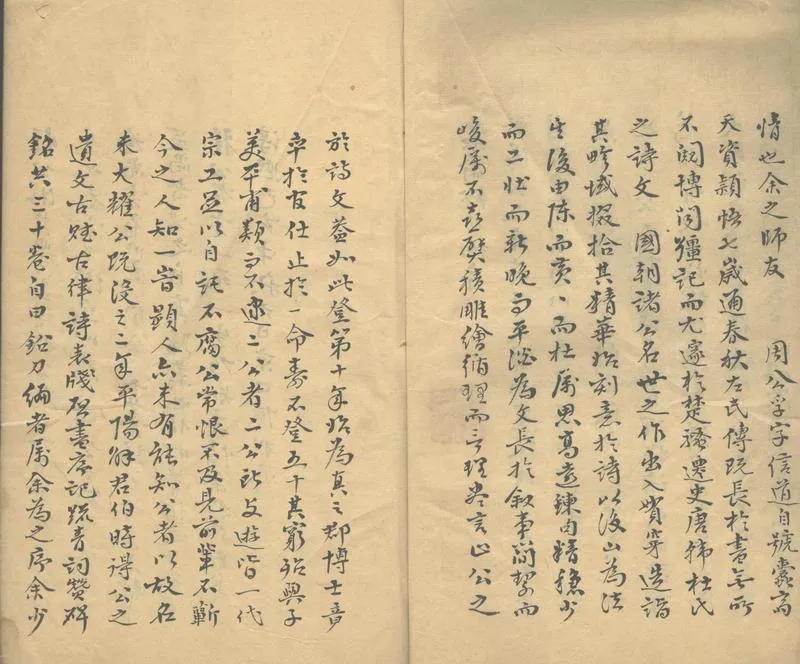 情也余之師友　　周公孚字信道自號蠹齋
天資穎悟七歲通春秋左氏傳既長於書無所
不闚博聞彊記而尤邃於楚騷遷史唐杜氏
之詩文　國朝諸公名世之作出入貫穿造詣
其畛域掇拾其精華始刻意於詩以後山為法
生後由陳而黄、而杜屬思高遠鍊句精穩少
而工壯而新晚而平淡為文長於敘事簡潔而
峻厲不喜襞積雕繪循理而言理盡言止公之
於詩文蓋如此登第十年始為真之郡博士竟
卒於官仕止於一命壽不登五十其窮殆與子
美平甫類而不逮二公者二公所與遊皆一代
宗工足以自託不腐公常恨不及見前輩不蘄
今之人知一當顯人亦未有能知公者以故名
未大耀公既沒之二年平陽解君伯時得公之
遺文古賦古律詩表牋啓書序記疏青詞贊碑
銘共三十卷自曰鉛刀編者屬余為之序余少